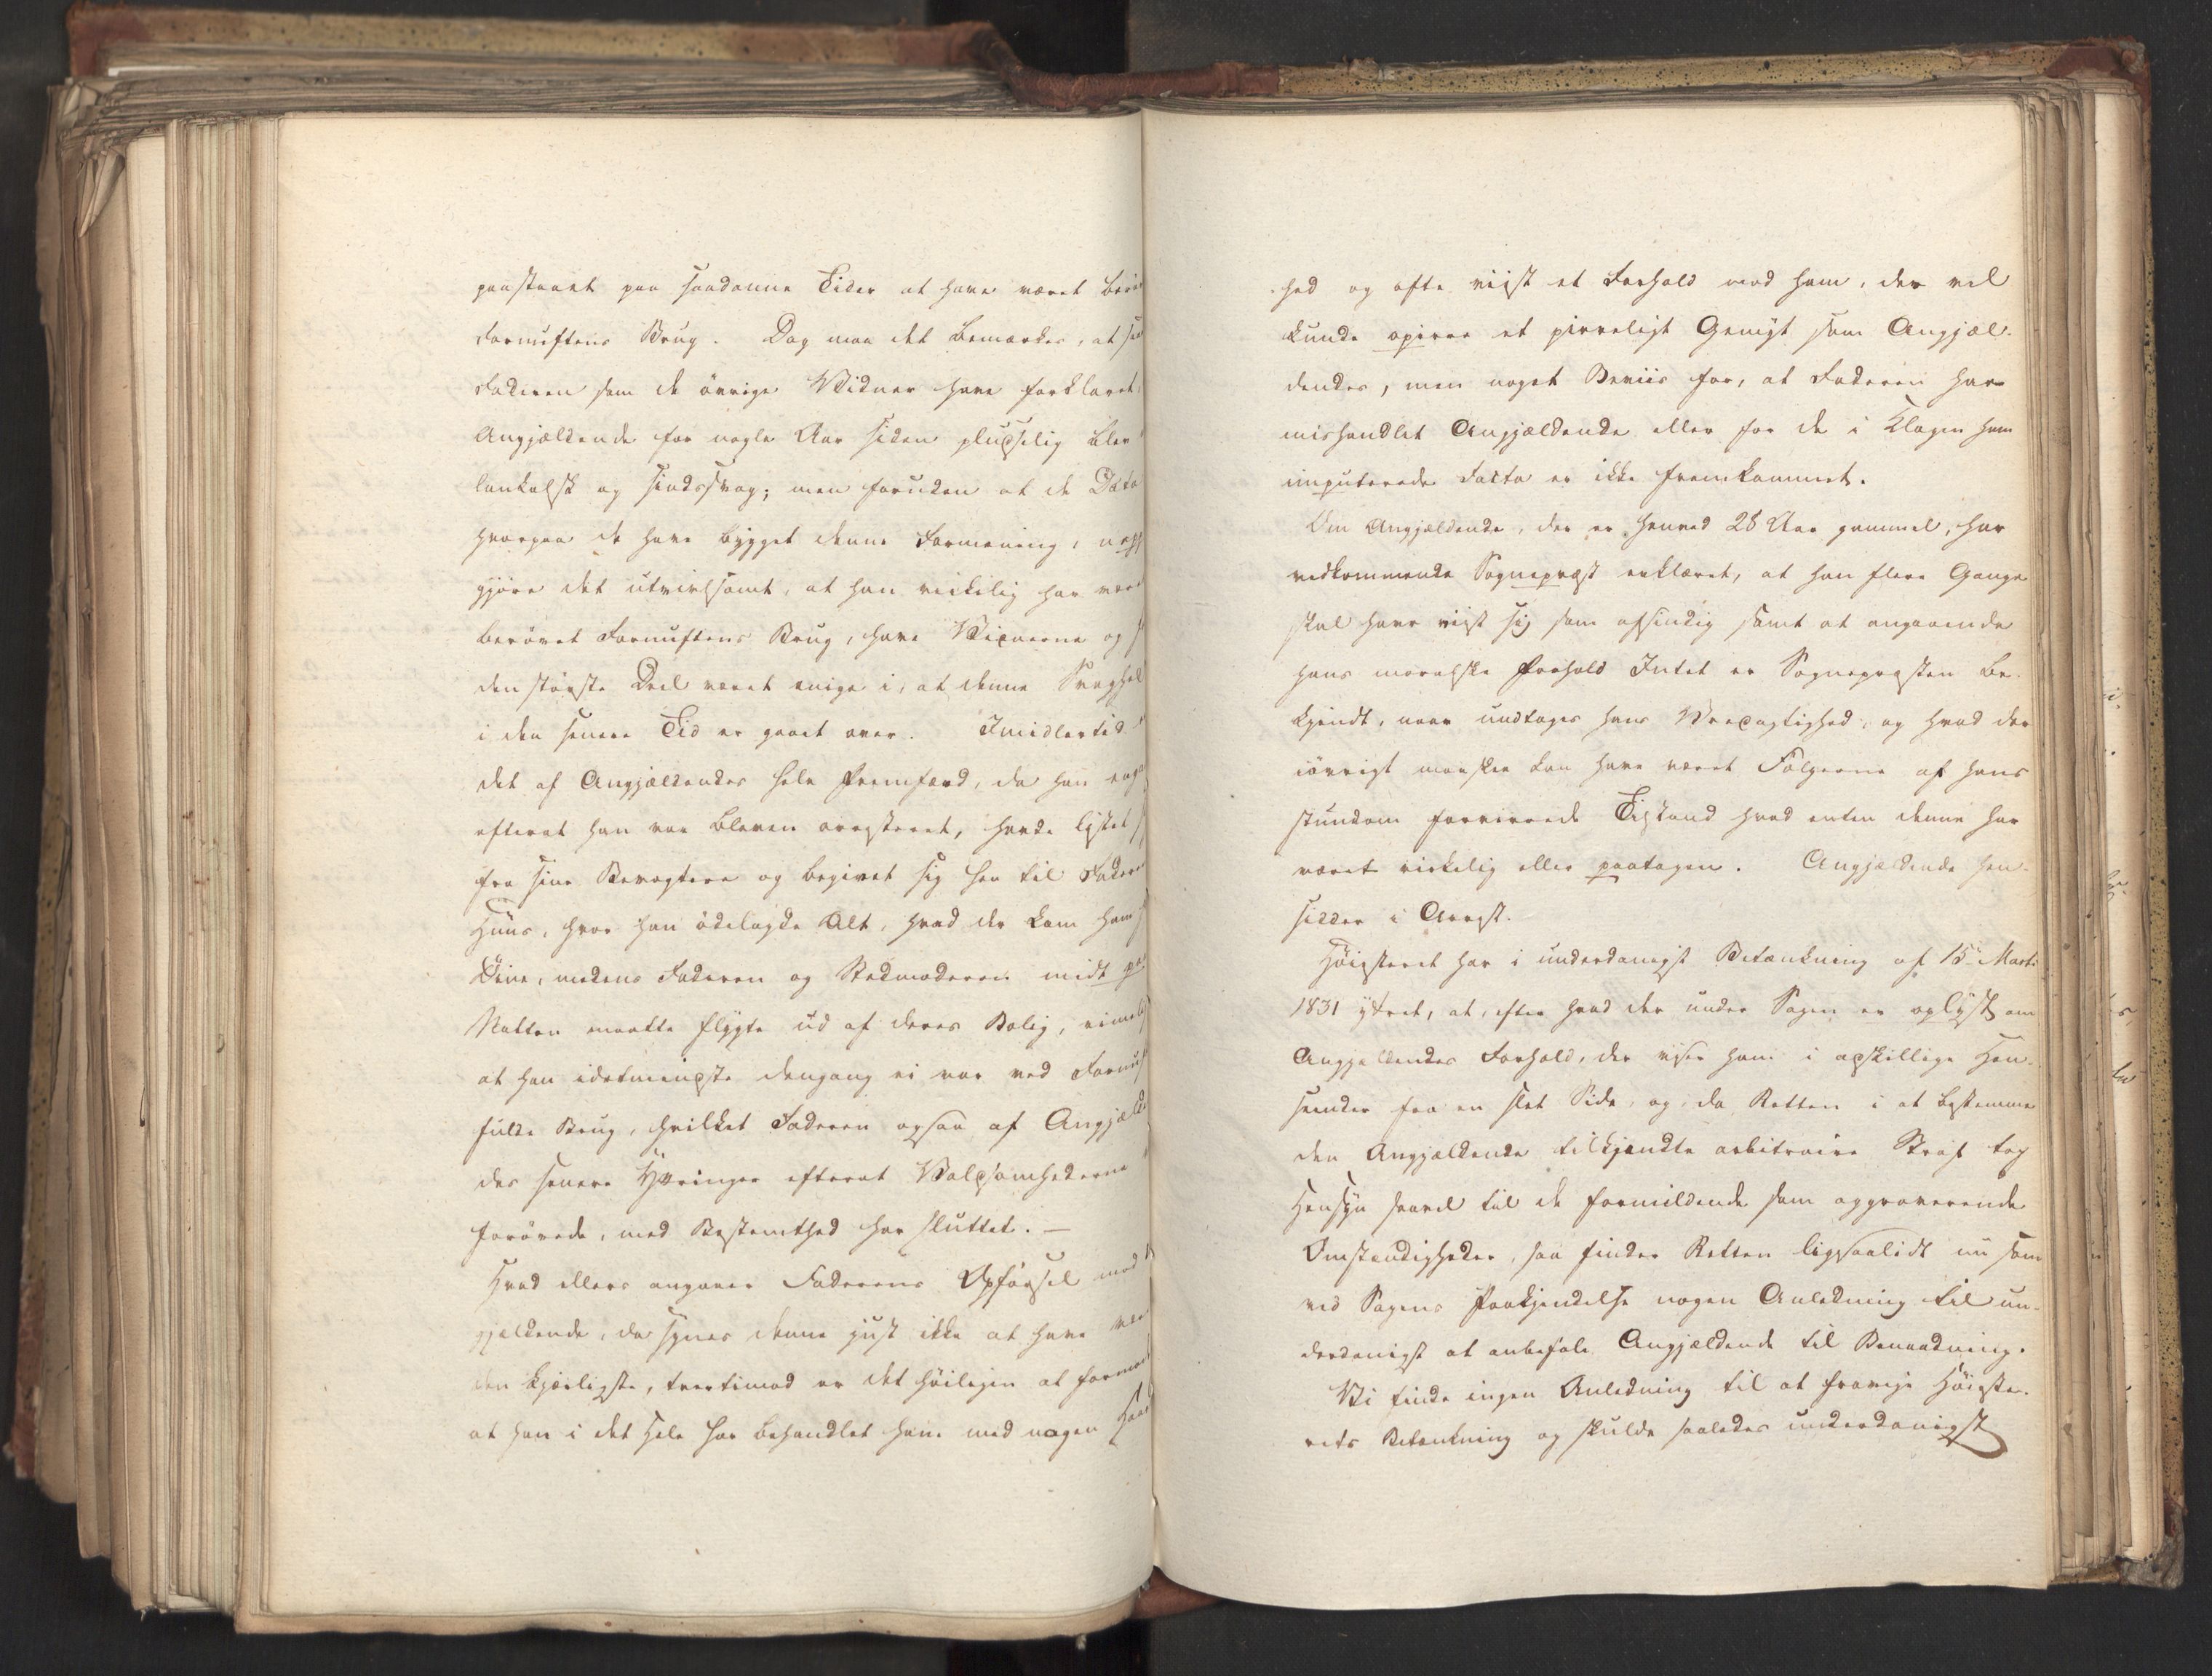 paastaaet paa saadanne Tider at have været berø
Fornuftens Brug. Dog maa det bemærkes, at saa
Faderen som de øvrige Vidner have forklaret,
Angjældende for nogle Aar siden pludselig blev
lankolsk og sindssvag; men foruden at de Data
hvorpaa de have bygget denne Formening, nepp
gjøre det utvivlsomt, at han virkelig har være
berøvet Fornuftens Brug, have Vidnerne og f
den største Deel været enige i, at denne Svaghed
i den senere Tid er gaaet over. Imidlertid
det af Angjældendes hele Fremfærd, da han
efterat han var bleven arresteret, havde listet
fra sine Bevogtere og begivet sig hen til Fader
Huus, hvor han ødelagde Alt, hvad der kom ham
Øine, medens Faderen og Stedmoderen midt paa
Natten maatte flygte ud af deres Bolig, rimelig
at han idetmindste dengang ei var ved Fornuf
fulde Brug, hvilket Faderen ogsaa af Angjælde
des senere Yttringer efterat Voldsomhederne
forøvede, med Bestemthed har sluttet. —
Hvad ellers angaaer Faderens Opførsel mod
gjældende, da synes denne just ikke at have væ
den kjærligste, tvertimod er det høiligen at formod
at han i det Hele har behandlet ham med nogen Haard
hed og ofte viist et Forhold mod ham, der vel
kunde opirre et pirreligt Gemyt som Angjæl-
dendes, men noget Beviis for, at Faderen har
mishandlet Angjældende eller for de i Klagen ham
imputerede Facta er ikke fremkommet.
Om Angjældende, der er henved 28 Aar gammel, har
vedkommende Sognepræst erklæret, at han flere Gange
skal have viist sig som afsindig samt at angaaende
hans moralske Forhold Intet er Sognepræsten be-
kjendt, naar undtages hans Uredagtighed, og hvad der
iøvrigt maaskee kan have været Følgerne af hans
stundom forvirrede Tilstand hvad enten denne har
været virkelig eller paatagen. Angjældende hen-
sidder i Arrest.
Høiesteret har i underdanigst Betænkning af 15de Marts
1831 yttret, at, efter hvad der under Sagen er oplyst om
Angjældendes Forhold, der viser ham i adskillige Hen-
seender fra en slet Side, og da Retten i at bestemme
den Angjældende tilkjendte arbitraire Straf tog
Hensyn saavel til de formildende som aggraverende
Omstændigheder, saa finder Retten ligesaalidt nu som
ved Sagens Paakjendelse nogen Anledning til un-
derdanigst at anbefale Angjældende til Benaadning.
Vi finde ingen Anledning til at fravige Høieste-
rets Betænkning og skulde saaledes underdanigst